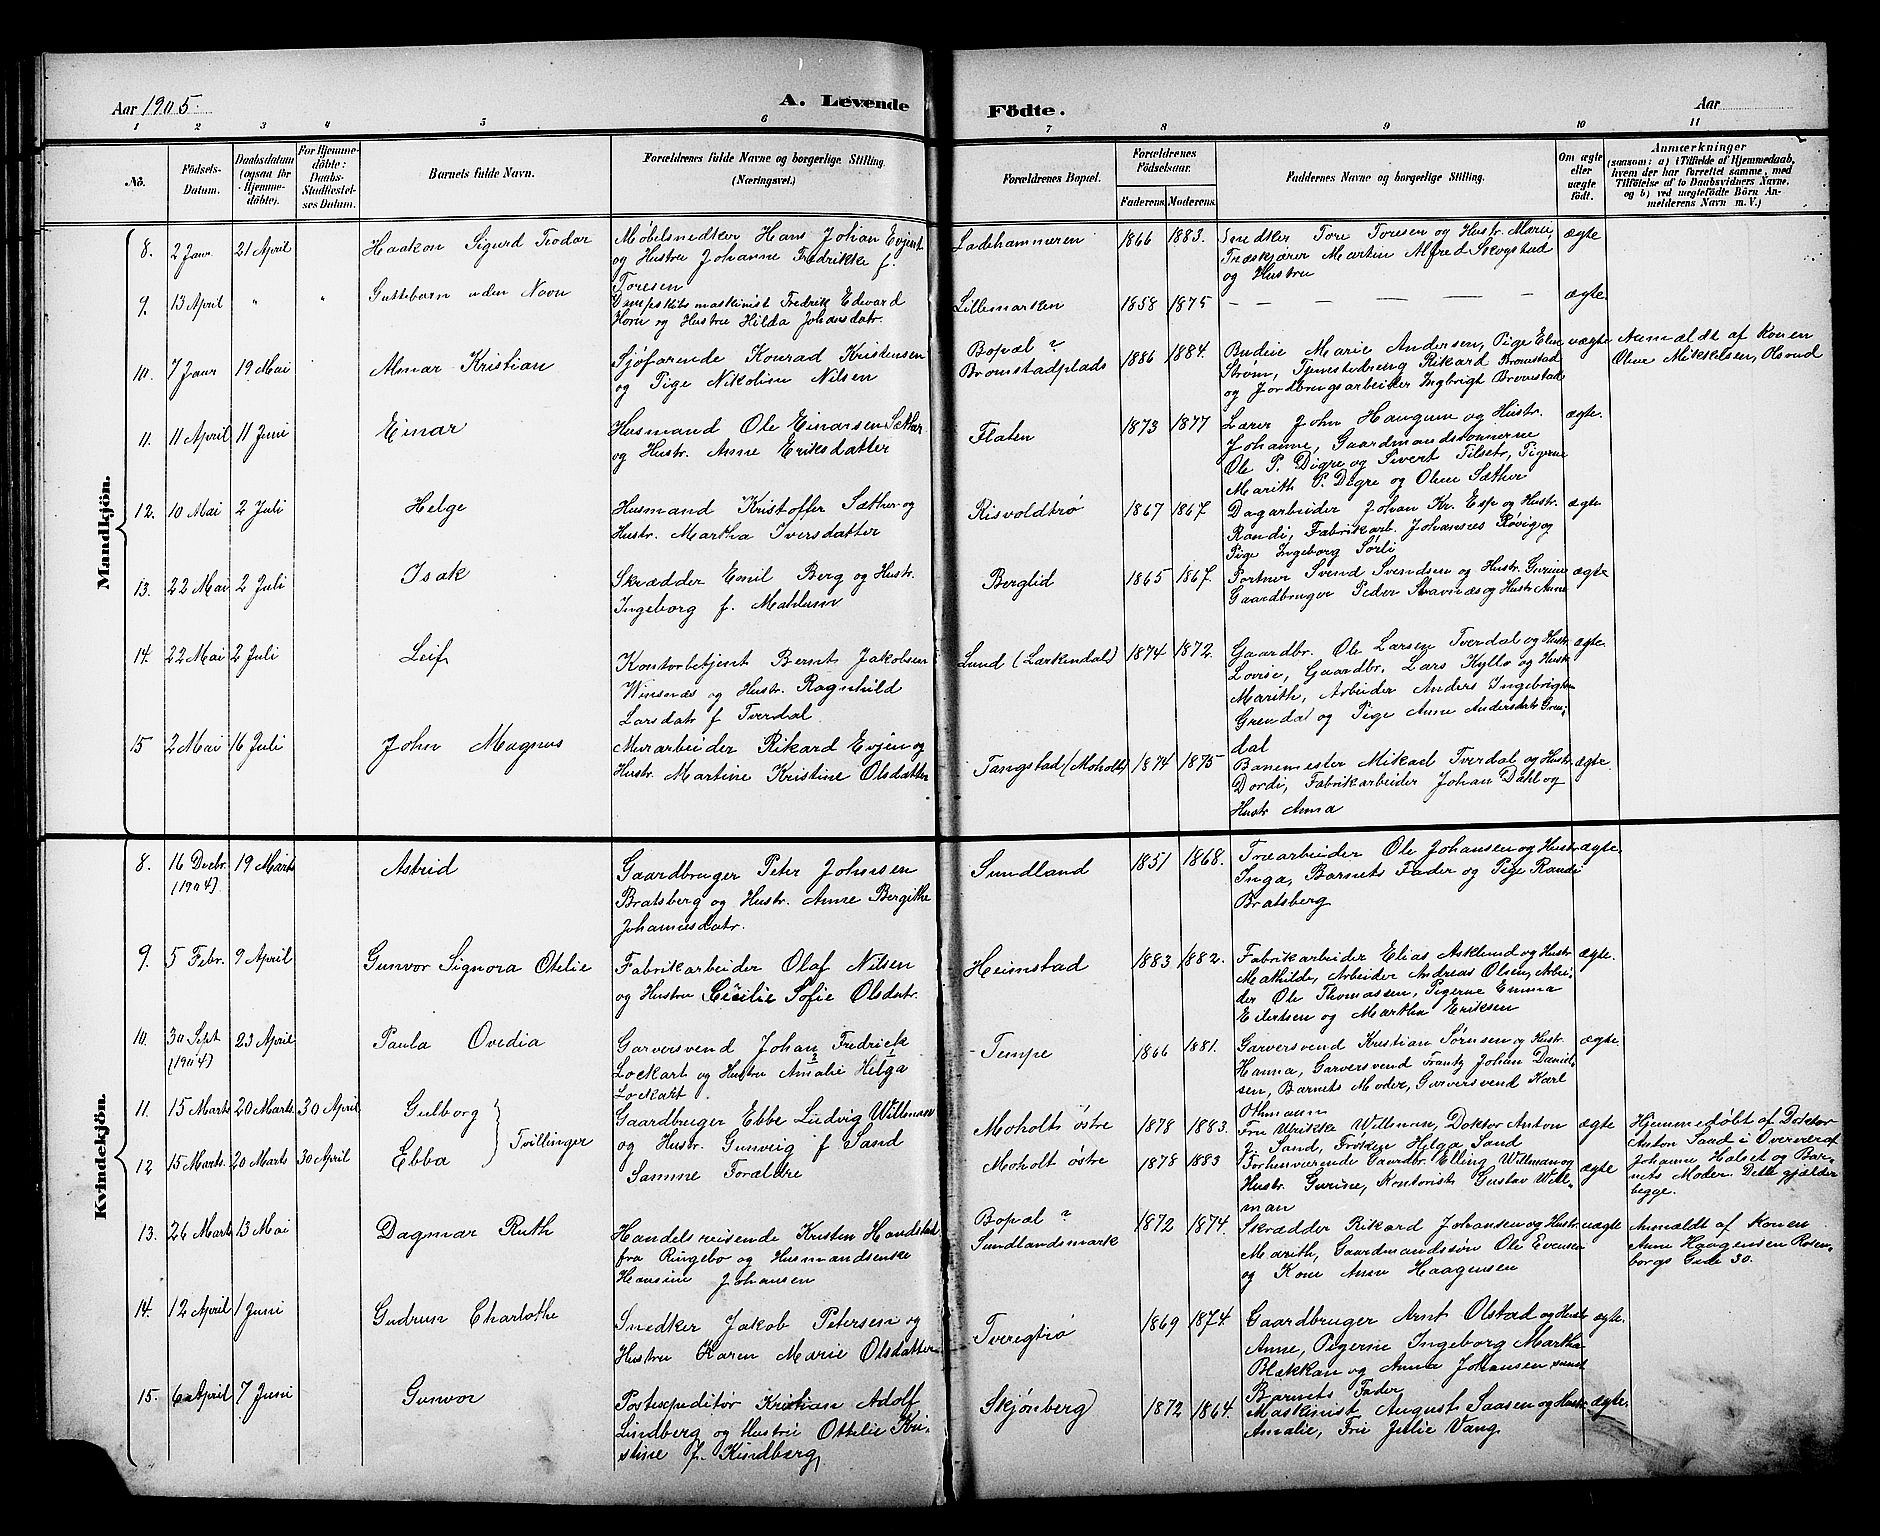 Aar 1905.
A. Levende Födte.
Aar
1 2 3 4 5 6 7 8 9 10 11
Nö.
Födsels-Datum.
Daabsdatum (ogsaa for Hjemme-döbte).
For Hjemme-döbte: Daabs-Stadfæstel-ses Datum.
Barnets fulde Navn.
Forældrenes fulde Navne og borgerlige Stilling. (Næringsvei.)
Forældrenes Bopæl.
Forældrenes Födselsaar. Faderens. Moderens.
Faddernes Navne og borgerlige Stilling.
Om ægte eller uægte födt.
Anmærkninger (saasom: a) i Tilfælde af Hjemmedaab, hvem der har forrettet samme, med Tilföielse af to Daabsvidners Navne, og b) ved uægtefödte Börn An-melderens Navn m. V.)
Mandkjön.
8. 2 Janr 21 April Haakon Sigurd Teodor Møbelsnedker Hans Johan Evjent og Hustru Johanne Fredrikke f. Toresen Ladehammeren 1866 1883. Snedker Tore Toresen og Hustr. Marie, Træskjærer Martin Alfred Skogstad og Hustru ægte
9. 13 April " " Guttebarn uden Navn Dampskibsmaskinist Fredrik Edvard Horn og Hustru Hilda Johansdatr. Lillemarken 1858 1875 — — — — — — ægte.
10. 7 Janr 19 Mai Almar Kristian Sjøfarende Konrad Kristensen og Pige Nikoline Nilsen Bopæl ? Bromstadplads 1886 1884. Budeie Marie Andersen, Pige Elen Strøm, Tjenestedreng Rikard Bromstad og Jordbrugsarbeider Ingbrigt Bromstad uægte Anmældt af Konen Oline Mikkelsen, Olsund
11. 11 April 11 Juni Einar Husmand Ole Einarsen Sæther og Hustr. Anne Eriksdatter Flaten 1873 1877 Lærer John Haugum og Hustr. Johanne, Gaardmandssønnerne Ole P. Digre og Sivert Tilsetr, Pigerne Marith P. Digre og Oline Sæther ægte.
12. 10 Mai 2 Juli Helge Husmand Kristoffer Sæther og Hustr. Martha Iversdatter Risvoldtrø 1867 1867. Dagarbeider Johan Kr. Esp og Hustr. Randi, Fabrikarb. Johannes Røvig og Pige Ingeborg Sørli ægte
13. 22 Mai 2 Juli Isak Skrædder Emil Berg og Hustr. Ingeborg f. Mahlum Berglid 1865 1867. Portner Svend Svendsen og Hustr. Gurine, Gaardbruger Peder Stavnæs og Hustr. Anne ægte
14. 22 Mai 2 Juli Leif Kontorbetjent Bernt Jakobsen Winsnæs og Hustr. Ragnhild Larsdatr f. Tverdal. Lund (Lerkendals) 1874 1872. Gaardbr. Ole Larsen Tverdal og Hustr. Lovise, Gaardbr. Lars Kyllo og Hustr. Marith, Arbeider Anders Ingebrigtsen Grendal og Pige Anne Andersdatr Grendal ægte.
15 2 Mai 16 Juli John Magnus Murarbeider Rikard Evjen og Hustr. Martine Kristine Olsdatter Tangstad (Moholt) 1874 1875 Banemester Mikael Tverdal og Hustr. Dordi, Fabrikarbeider Johan Dahl og Hustr Anna ægte.
Kvindekjön.
8. 16 Decbr. (1904) 19 Marts Astrid Gaardbruger Peter Johnsen Bratsberg og Hustr. Anne Bergithe Johannesdatr. Sundland 1851 1868. Træarbeider Ole Johansen og Hustr Inga, Barnets Fader og Pige Randi Bratsberg ægte.
9. 5 Febr. 9 April Gunvor Signora Otelie Fabrikarbeider Olaf Nilsen og Hustru Cecilie Sofie Olsdatr. Heimstad 1883 1882. Fabrikarbeider Elias Asklund og Hustr Mathilde, Arbeider Andreas Olsen, Arbei-der Ole Thomassen, Pigerne Emma Eilertsen og Martha Eriksen ægte.
10. 30 Sept (1904) 23 April Paula Ovedia Garversvend Johan Fredrick Lockart og Hustru Amalie Helga Lockart. Tempe 1866 1881. Garversvend Kristian Sørnsen og Hustr. Hanna, Garversvend Frantz Johan Daniel-sen, Barnets Moder, Garversvend Karl Othmann ægte.
11. 15 Marts 20 Marts. 30 April Gulborg } Tvillinger Gaardbruger Ebbe Ludvig Willmann og Hustr. Gunveig f Sand Moholt østre 1878 1883. Fru Ulrikke Willmann, Doktor Anton Sand, Frøken Helga Sand ægte Hjemmedøbt af Doktor Anton Sand i Overvær af Johanne Halset og Bar-nets Moder. Dette gjælder begge.
12 15 Marts. 20 Marts 30 April Ebba Samme Forældre Moholt østre 1878 1883 Forhenværende Gaardbr. Elling Willmann og Hustr. Gurine, Kontorist Gustav Will-man ægte
13. 26 Marts 13 Mai Dagmar Ruth Handelsreisende Kristen Handstad fra Ringebo og Husmandsenke Hansine Johansen Bopæl ? Sundlandsmark 1872 1874. Skrædder Rikard Johansen og Hustr Marith, Gaardmandssøn Ole Evensen og Kone Anne Haagensen uægte Anmældt af Konen Anne Haagensen Rosen-borgs Gade 30.
14. 12 April 1 Juni Gudrun Charlothe Snedker Jakob Petersen og Hustru Karen Marie Olsdatter Tveregtrø 1869 1874. Gaardbruger Arnt Olstad og Hustr Anne, Pigerne Ingeborg Martha Blækkan og Anna Johansen samt Barnets Fader ægte.
15. 6 April 7 Juni Gunvor Postexpeditør Kristian Adolf Lindberg og Hustru Ottelie Kri-stine f. Kindberg Skjønberg) 1872 1864. Maskinist August Saasen og Hustr. Amalie, Fru Julie Vang. ægte.